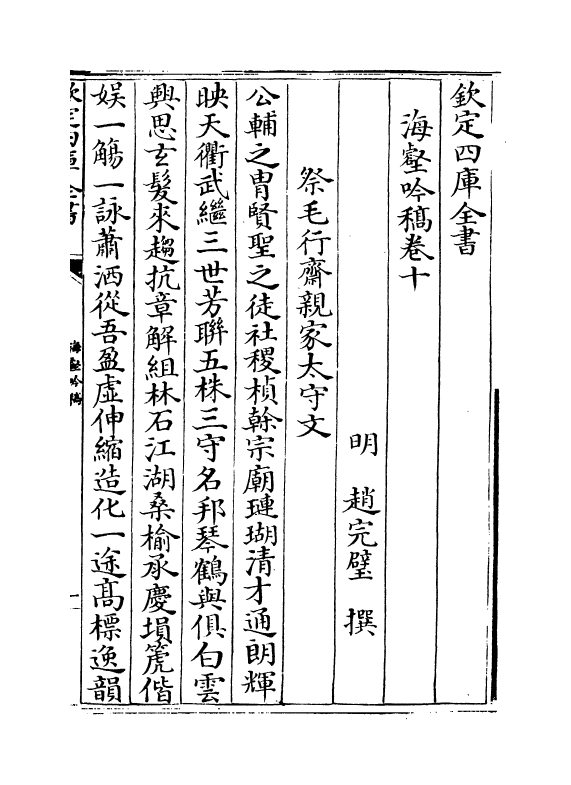 欽定四庫全書
海壑吟稿卷十
明　趙完璧　撰
祭毛行齋親家太守文
公輔之胄賢聖之徒社稷楨幹宗廟璉瑚清才通朗輝
映天衢武繼三世芳聯五株三守名邦琴鶴與俱白雲
興思玄髮來趨抗章解組林石江湖桑榆承慶塤篪偕
娱一觴一詠蕭洒從吾盈虛伸縮造化一途髙標逸韻
欽定四庫全書
海壑吟稿
一